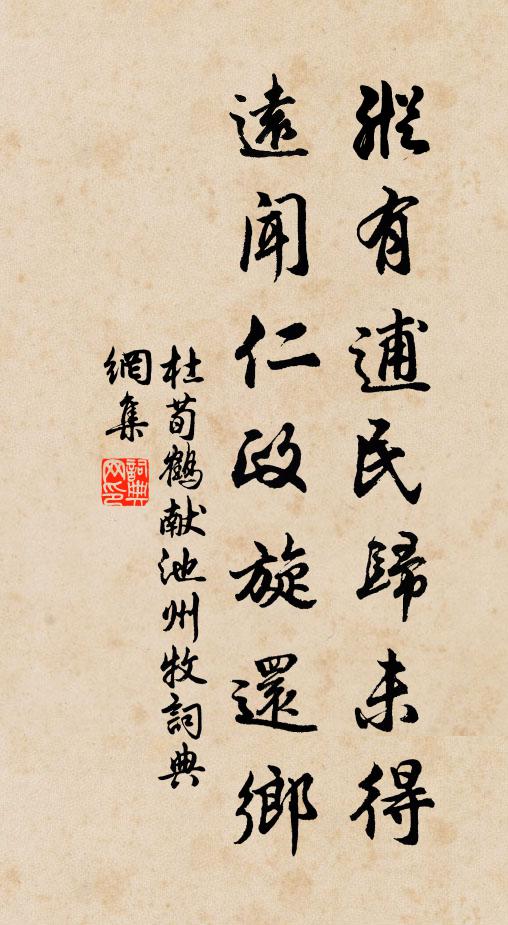 縱有逋民歸未得
遠聞仁政旋還鄉
杜荀鶴獻池州牧詞典
網集
詞典
网印